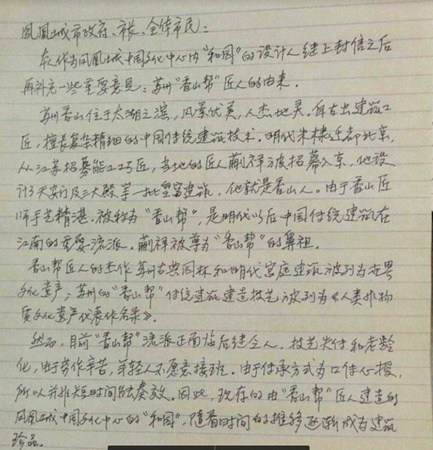 凤凰城市政府、市长、全体市民：
我作为凤凰城中国文化中心内“和园”的设计人继上封信之后
再补充一些重要意见：苏州“香山帮”匠人的由来。
苏州香山位于太湖之滨，风景优美，人杰地灵，自古出建筑工
匠，擅长复杂精细的中国传统建筑技术。明代朱棣迁都北京，
从江苏招募能工巧匠，当地的匠人蒯祥被招募入京，他设
计天安门及三大殿等一批皇宫建筑，他就是香山人。由于香山匠
师手艺精湛，被称为“香山帮”，是明代以后中国传统建筑在
江南的重要流派。蒯祥被尊为“香山帮”的鼻祖。
香山帮匠人的杰作苏州古典园林和明代宫庭建筑被列为世界
文化遗产；苏州的“香山帮”传统建筑建造技艺被列为《人类非物
质文化遗产代表作名录》。
然而，目前“香山帮”流派正面临后继乏人，技艺失传和老龄
化，由于劳作辛苦，年轻人不愿意接班。由于传承方式为口传心授，
所以并非短时间能奏效。因此，现存的由“香山帮”匠人建造的
凤凰城中国文化中心的“和园”，随着时间的推移逐渐成为建筑
珍品。